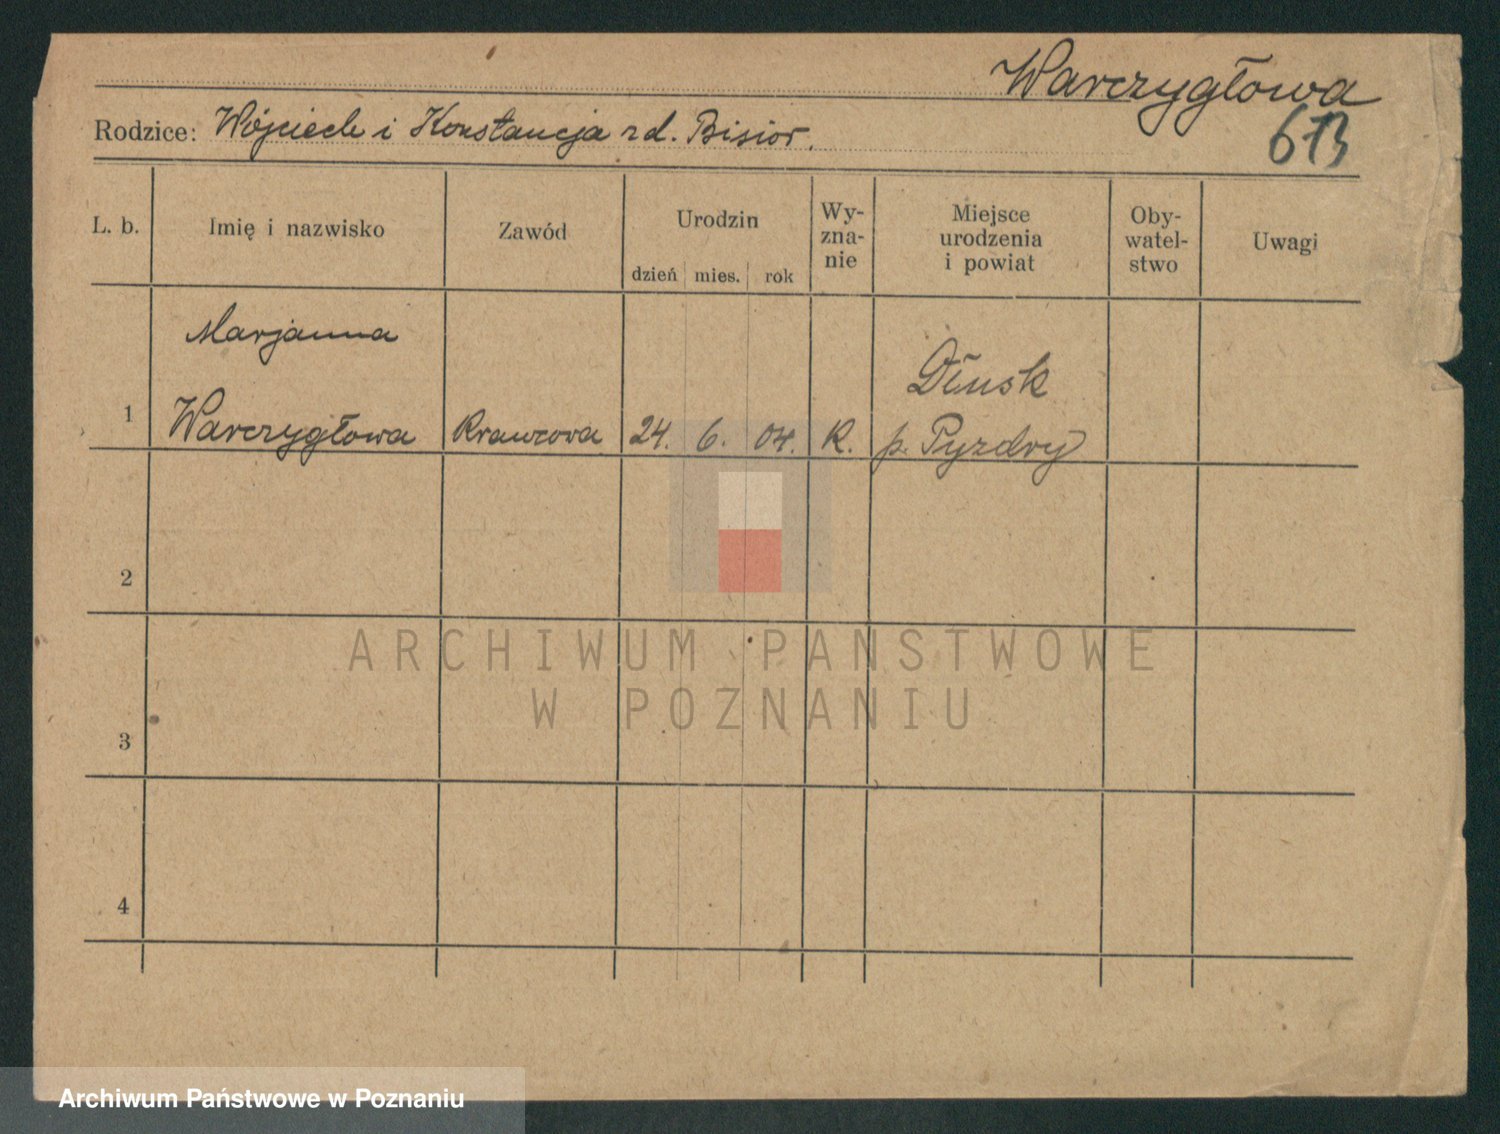 Warczygłowa
613
Rodzice: Wojciech i Konstancja zd. Bisior.
L. b. Imię i nazwisko Zawód Urodzin dzień mies. rok Wy-zna-nie Miejsce urodzenia i powiat Oby-watel-stwo Uwagi
Marjanna
Dłusk
1 Warczygłowa Krawcowa 24. 6. 04. R. p. Pyzdry
2
3
4
ARCHIWUM PAŃSTWOWE
W POZNANIU
Archiwum Państwowe w Poznaniu